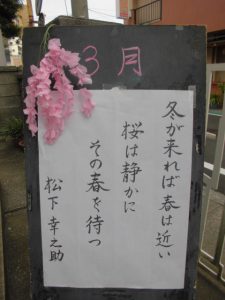 3月
冬が来れば春は近い
桜は静かに
その春を待つ
松下 幸之助